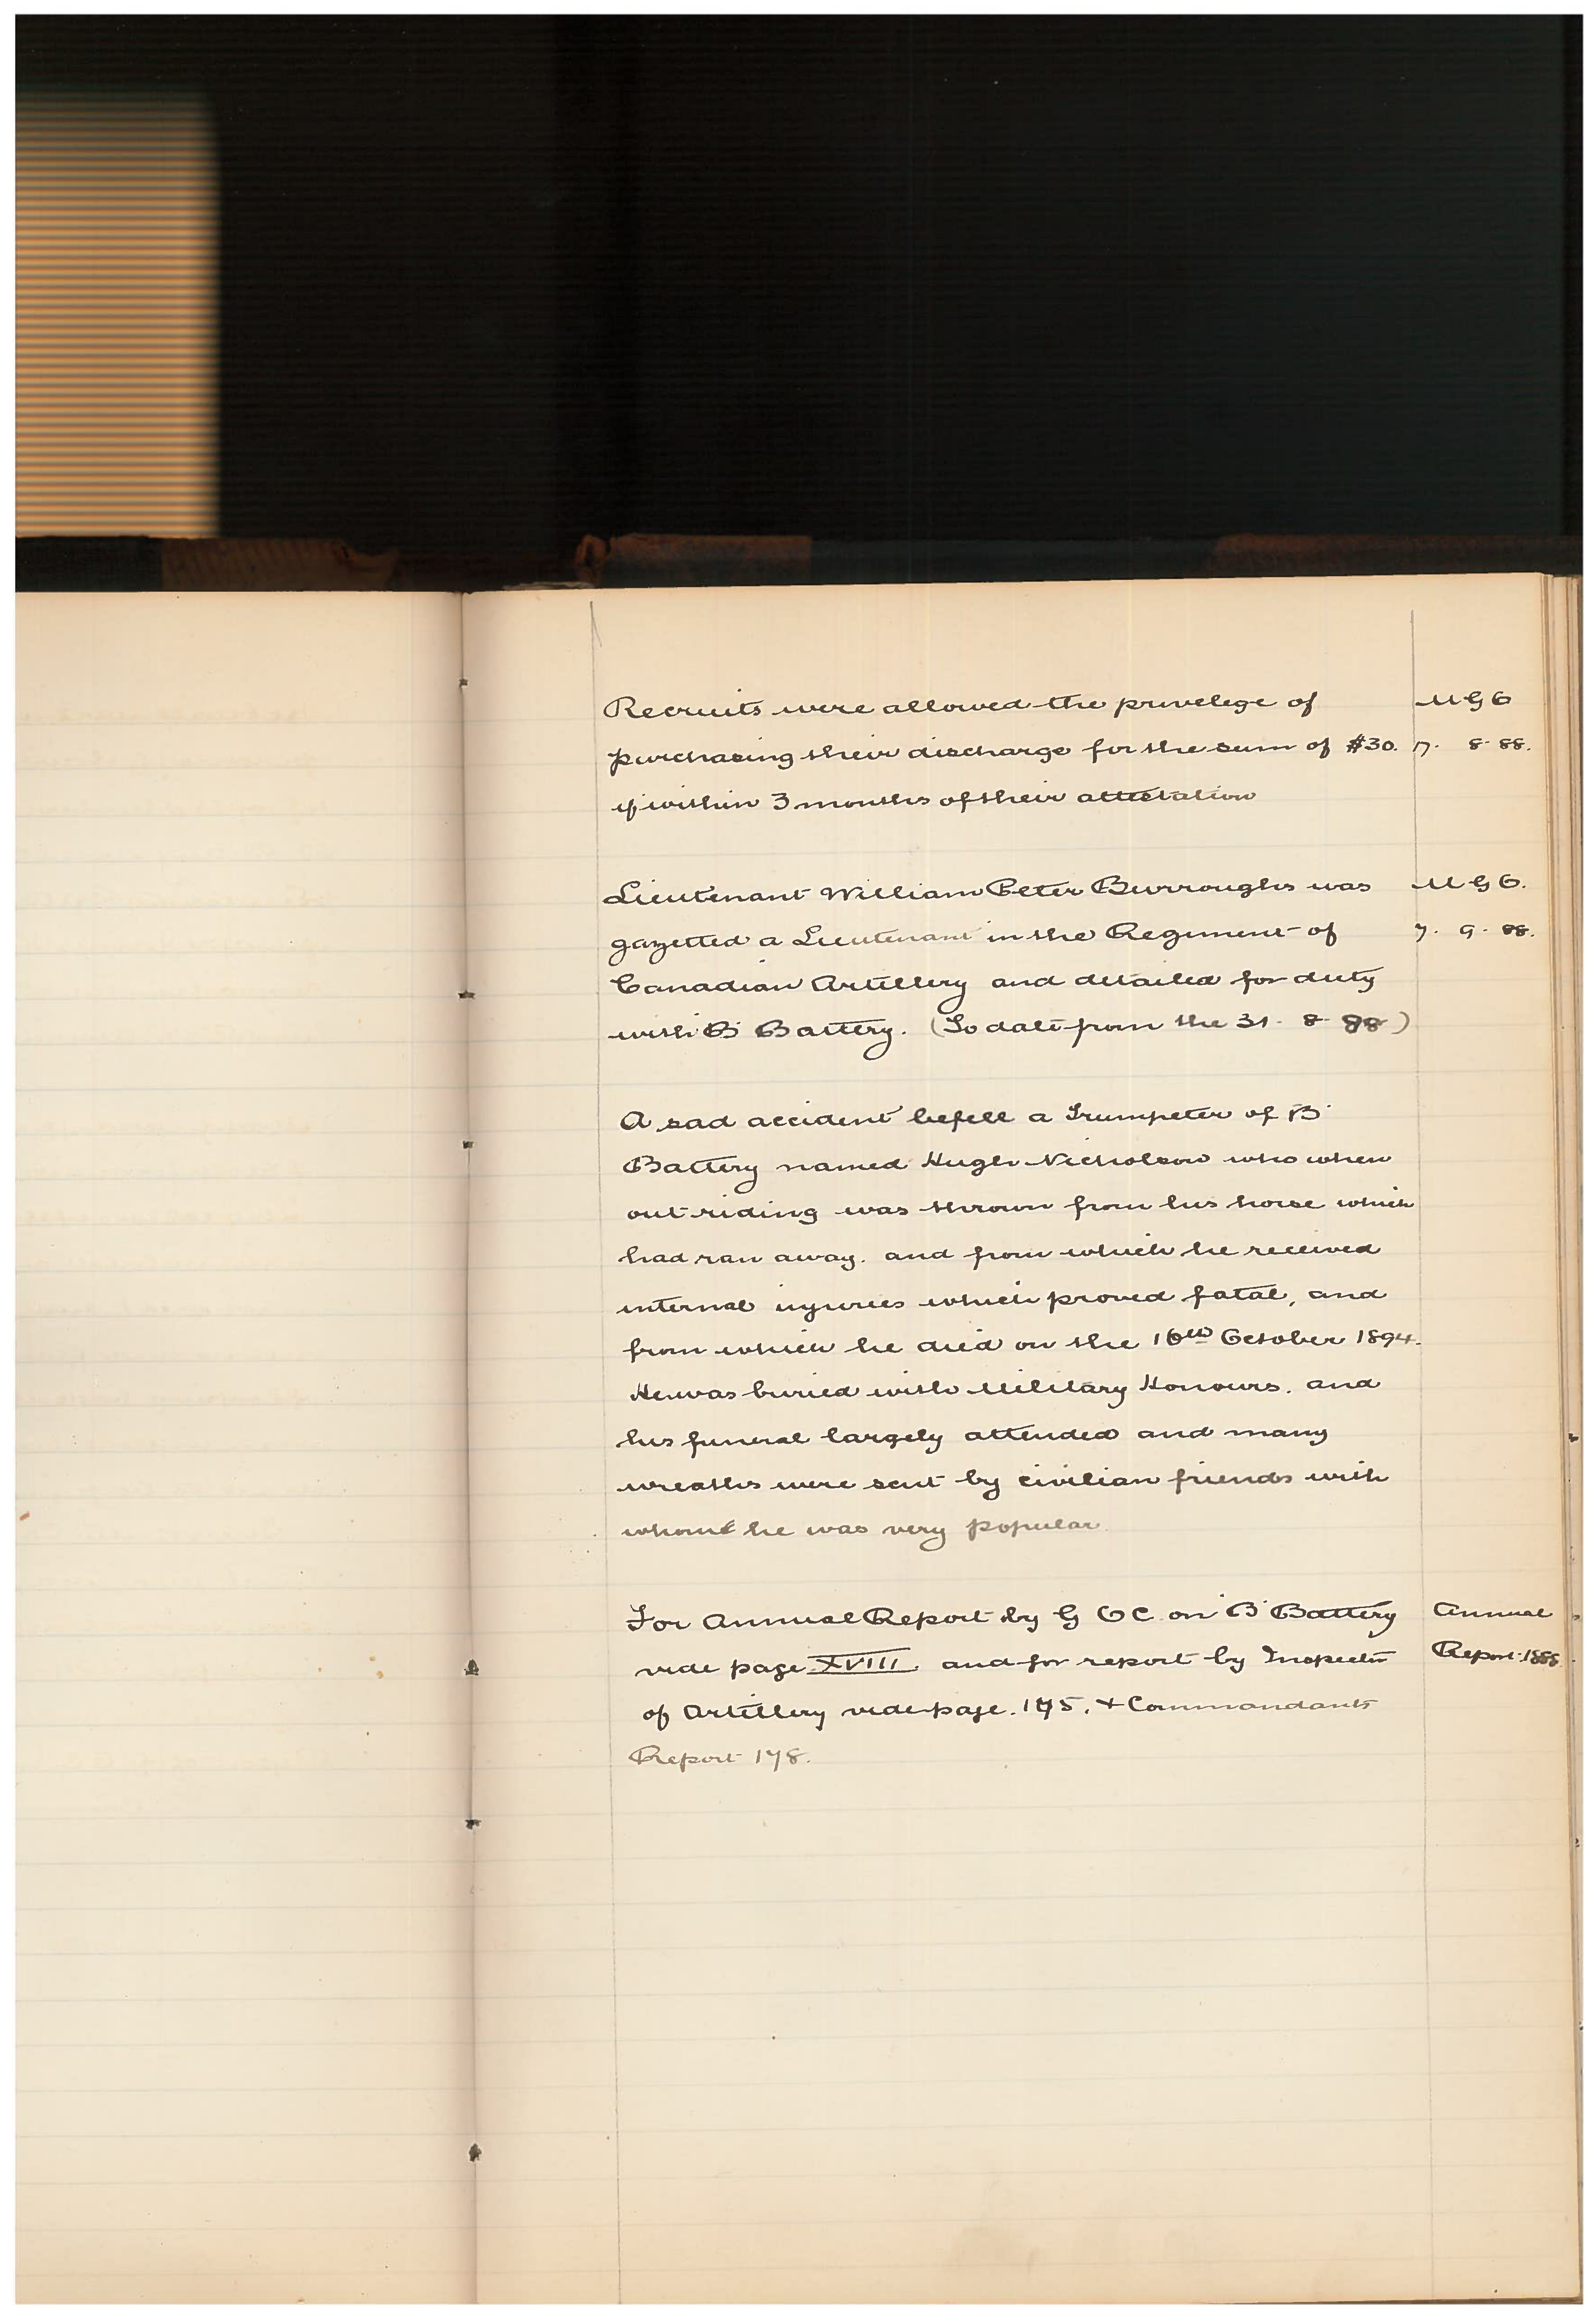 Recruits were allowed the privelege of M G O
purchasing their discharge for the sum of $30. 7. 8. 88.
if within 3 months of their attestation
Lieutenant William Peter Burroughs was M G O.
gazetted a Lieutenant in the Regiment of 7. 9. 88.
Canadian Artillery and detailed for duty
with 'B' Battery. (To date from the 31. 8. 88)
A sad accident befell a Trumpeter of 'B'
Battery named Hugh Nicholson who when
out riding was thrown from his horse which
had ran away. and from which he received
internal injuries which proved fatal, and
from which he died on the 16th October 1894.
He was buried with Military Honours. and
his funeral largely attended and many
wreaths were sent by civilian friends with
whom he was very popular.
For Annual Report by G O C on 'B' Battery Annual
vide page XVIII and for report by Inspector Report 1888.
of Artillery vide page. 175. + Commandants
Report 178.